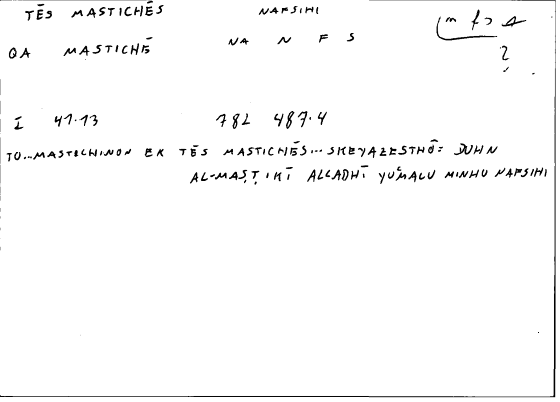 TĒS MASTICHĒS NAFSIHI
QA MASTICHĒ NA N F S
?
I 47.13 782 487.4
TO...MASTICHINON EK TĒS MASTICHĒS... SKEYAZESTHŌ: DUHN
AL-MAṢṬIKĪ ALLADHĪ YUʿMALU MINHU NAFSIHI